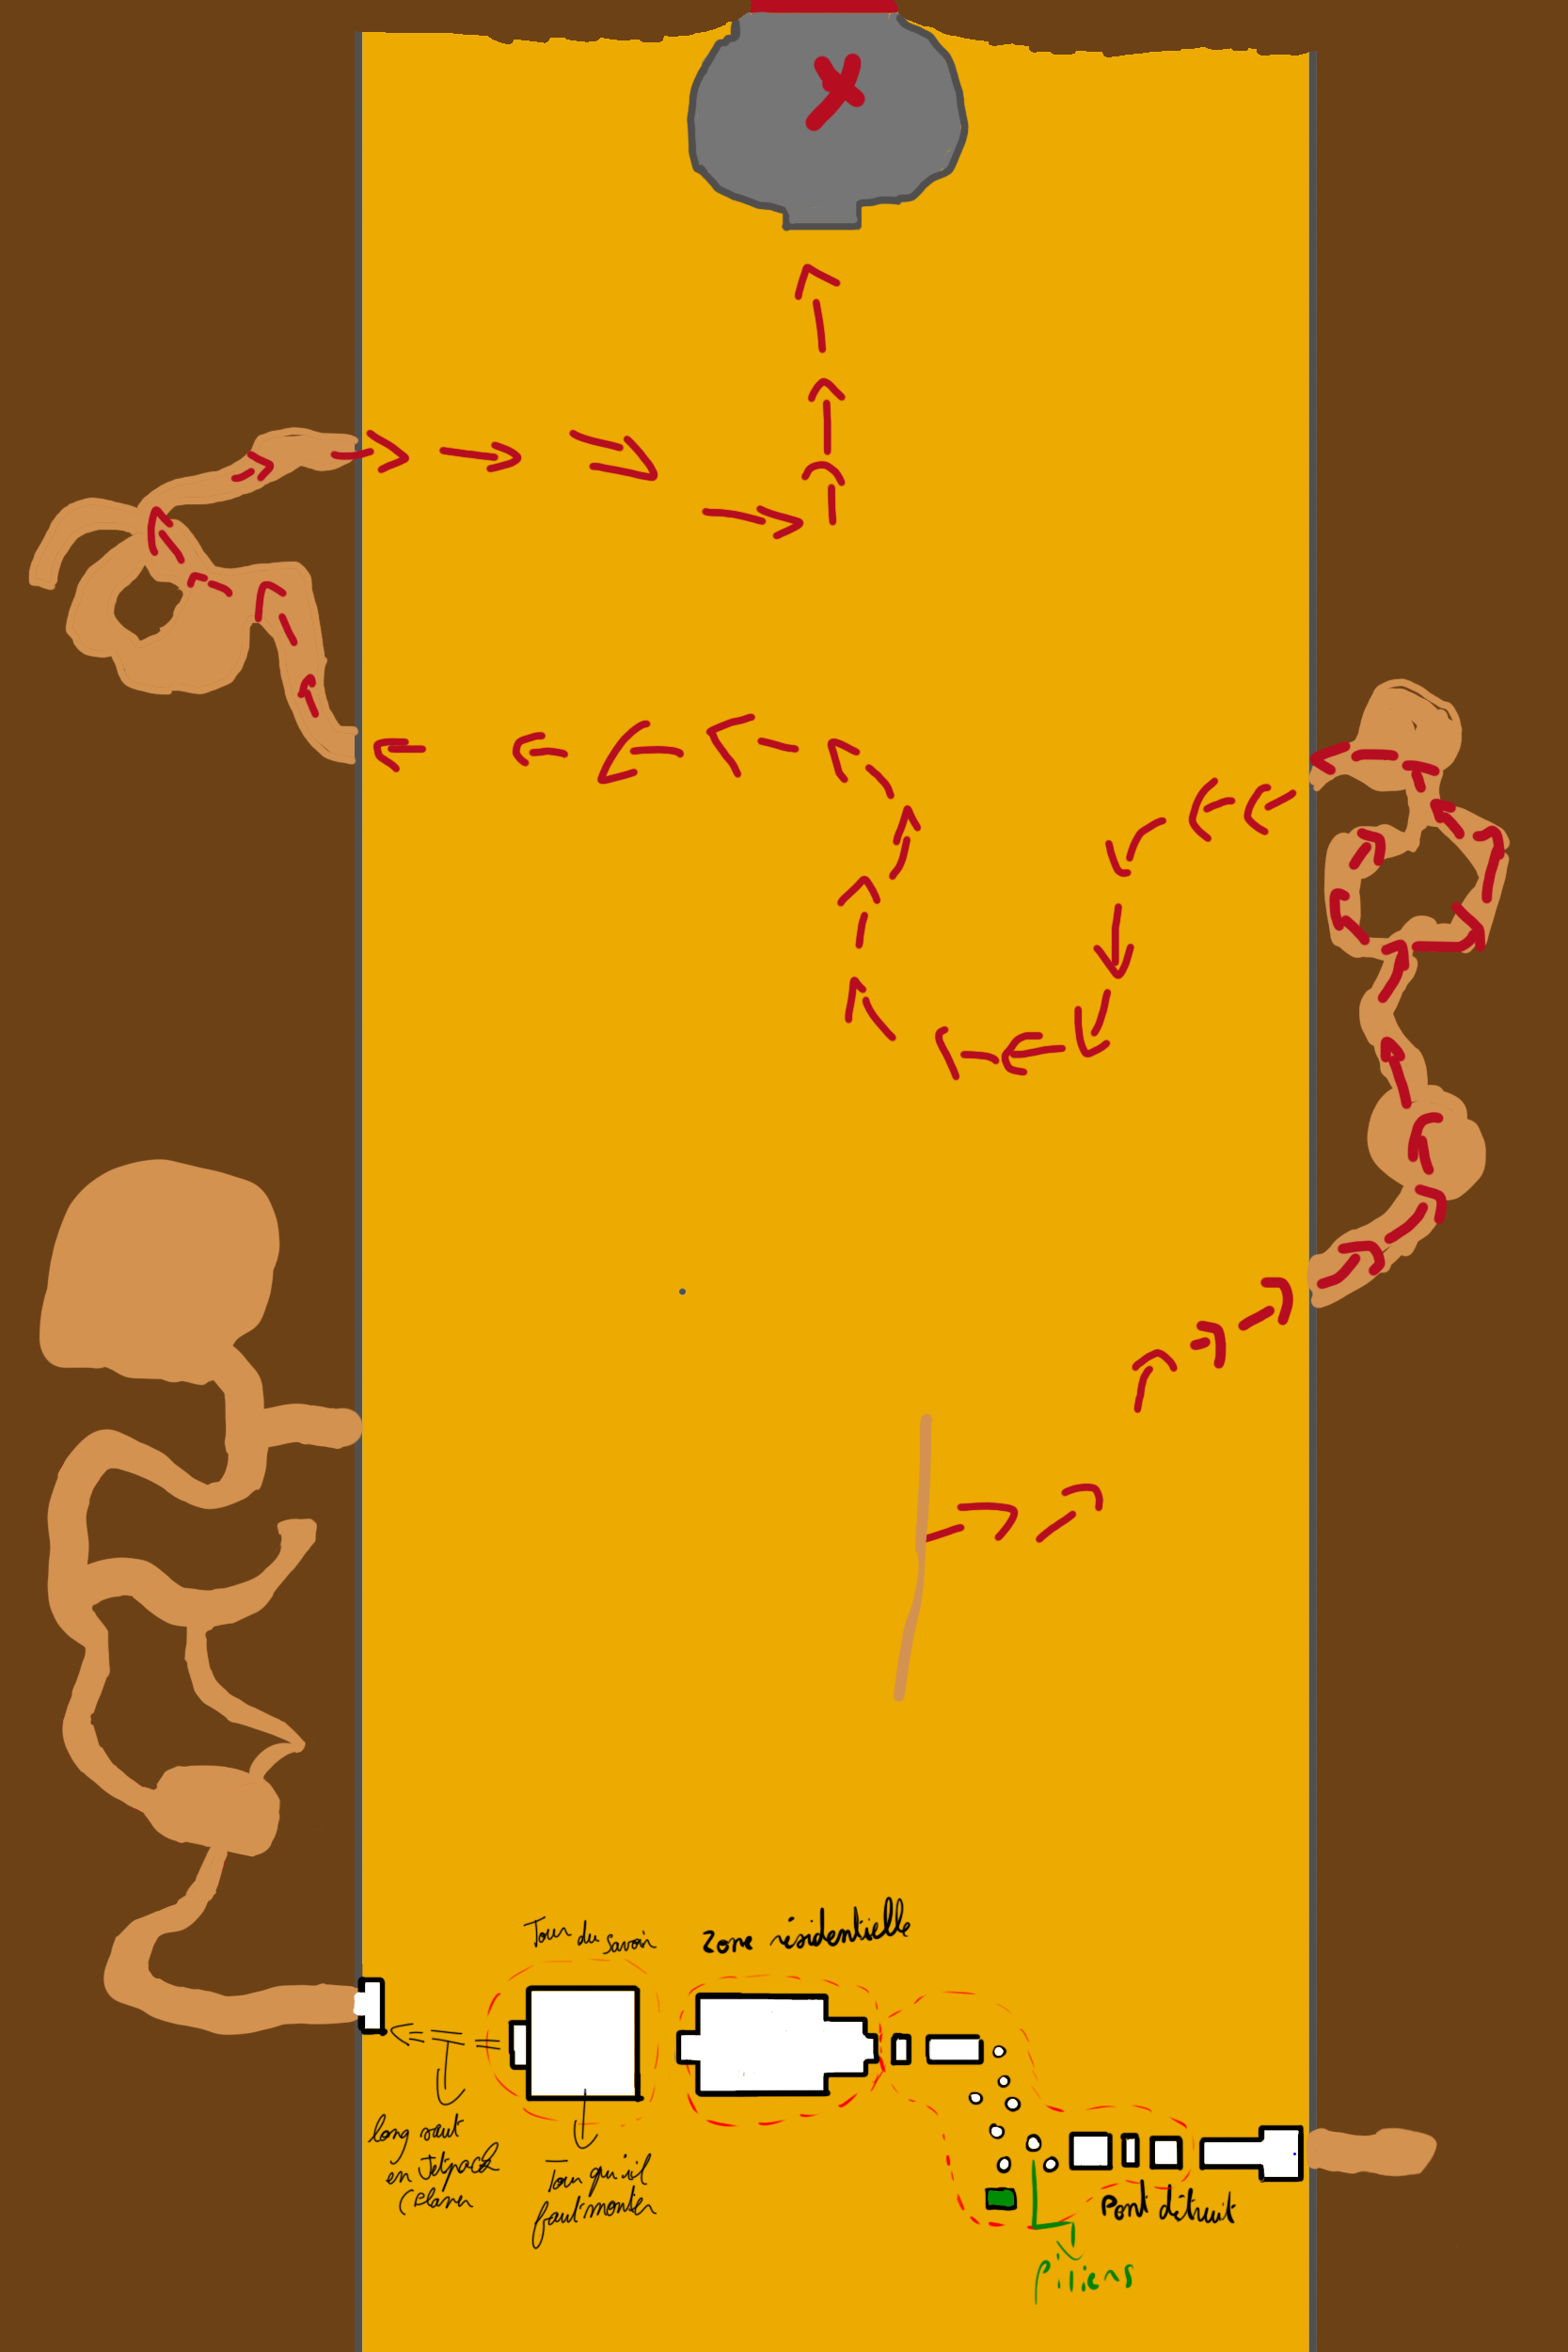 Tour du savoir
Zone résidentielle
long saut
en Jetpack
(elanen
Tour qu'il
faut monter
Pont détruit
Piliers